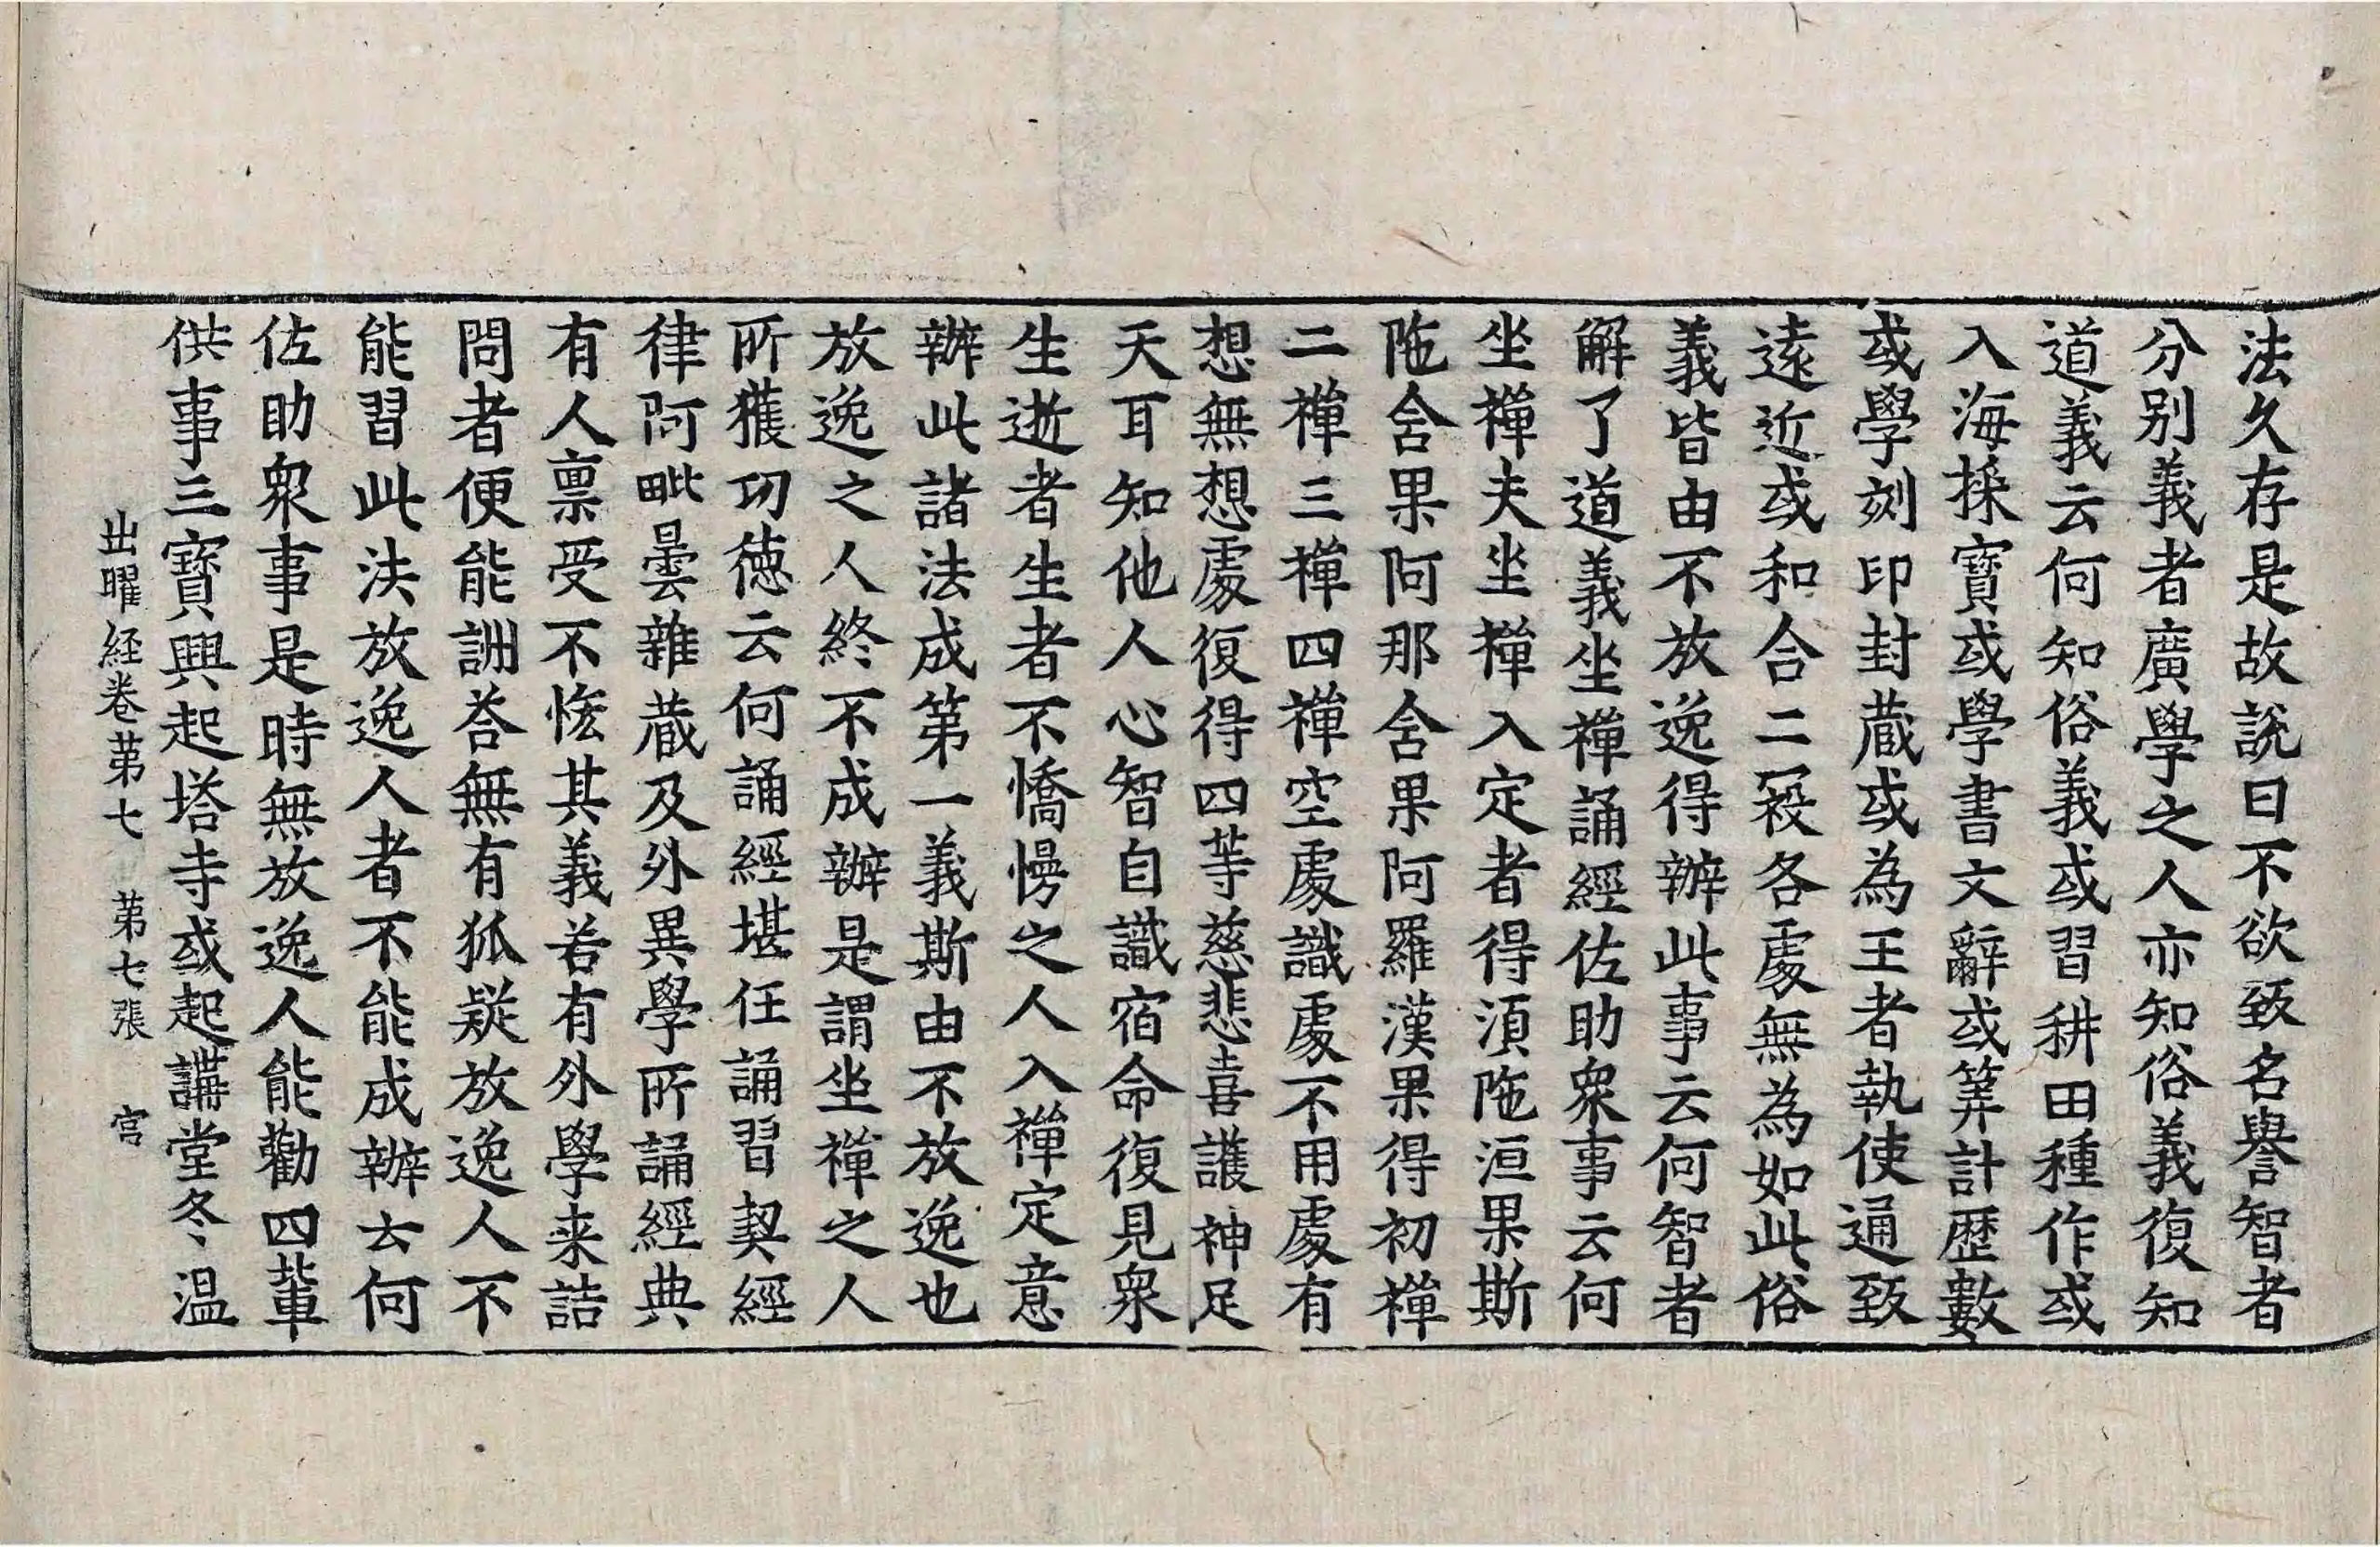 法久存是故說曰不欲致名譽智者
分别義者廣學之人亦知俗義復知
道義云何知俗義或習耕田種作或
入海採寶或學書文辭或筭計歷數
或學刻印封藏或為王者執使通致
遠近或和合二家各處無為如此俗
義皆由不放逸得辦此事云何智者
解了道義坐禪誦經佐助衆事云何
坐禪夫坐禪入定者得湏陁洹果斯
陁含果阿那含果阿羅漢果得初禪
二禪三禪四禪空處識處不用處有
想無想處復得四等慈悲喜護神足
天耳知他人心智自識宿命復見衆
生逝者生者不憍慢之人入禪定意
辦此諸法成第一義斯由不放逸也
放逸之人終不成辦是謂坐禪之人
所獲功德云何誦經堪任誦習契經
律阿毗曇雜藏及外異學所誦經典
有人禀受不悋其義若有外學来詰
問者便能詶荅無有狐疑放逸人不
能習此法放逸人者不能成辦云何
佐助衆事是時無放逸人能勸四輩
供事三寶興起塔寺或起講堂冬温
出曜経卷苐七 苐七張 官